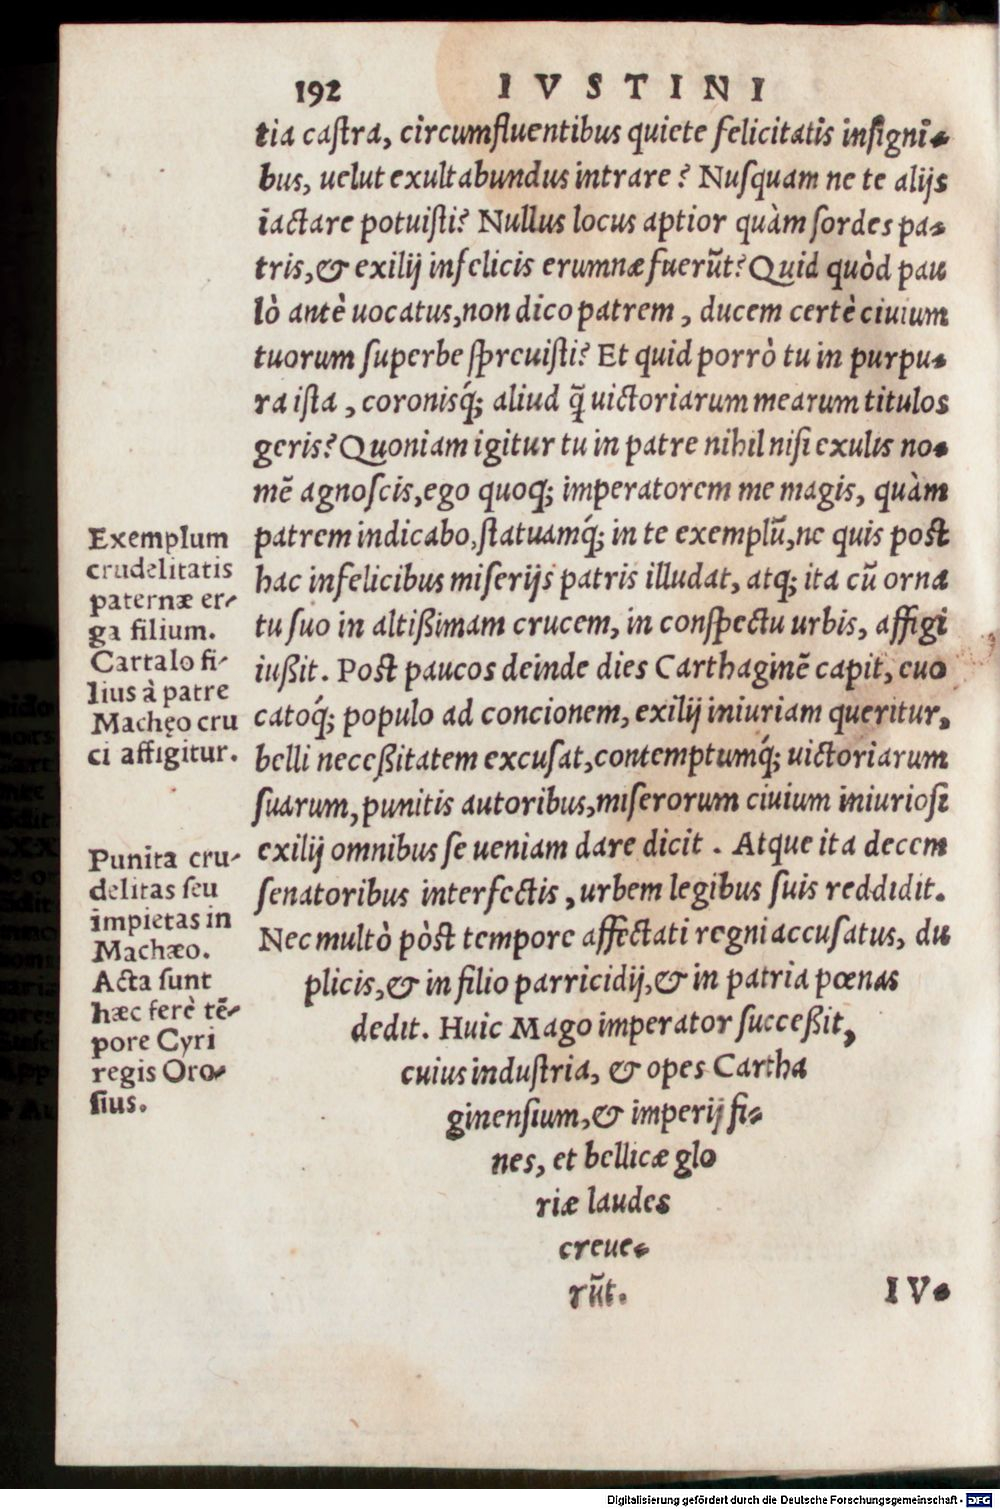 192 IVSTINI
tia caſtra, circumfluentibus quiete felicitatis inſigni-
bus, uelut exultabundus intrare? Nuſquam ne te alijs
iactare potuiſti? Nullus locus aptior quàm ſordes pa-
tris, & exilij infelicis erumnæ fuerūt? Quid quòd pau
lò antè uocatus, non dico patrem, ducem certè ciuium
tuorum ſuperbe ſpreuiſti? Et quid porrò tu in purpu-
ra iſta, coronisq́; aliud q̃ uictoriarum mearum titulos
geris? Quoniam igitur tu in patre nihil niſi exulis no-
mē agnoſcis, ego quoq; imperatorem me magis, quàm
patrem indicabo, ſtatuamq́; in te exemplū, ne quis poſt
hac infelicibus miſerijs patris illudat, atq; ita cū orna
tu ſuo in altißimam crucem, in conſpectu urbis, affigi
iußit. Poſt paucos deinde dies Carthaginē capit, euo
catoq́; populo ad concionem, exilij iniuriam queritur,
belli neceßitatem excuſat, contemptumq́; uictoriarum
ſuarum, punitis autoribus, miſerorum ciuium iniurioſi
exilij omnibus ſe ueniam dare dicit. Atque ita decem
ſenatoribus interfectis, urbem legibus ſuis reddidit.
Nec multò pòſt tempore affectati regni accuſatus, du
plicis, & in filio parricidij, & in patria pœnas
dedit. Huic Mago imperator ſucceßit,
cuius induſtria, & opes Cartha
ginenſium, & imperij fi-
nes, et bellicæ glo
riæ laudes
creue-
rūt.
IV-
Exemplum
crudelitatis
paternæ er-
ga filium.
Cartalo fi-
lius à patre
Machęo cru
ci affigitur.
Punita cru-
delitas ſeu
impietas in
Machæo.
Acta ſunt
hæc ferè tē-
pore Cyri
regis Oro-
ſius.
Digitalisierung gefördert durch die Deutsche Forschungsgemeinschaft - DFG